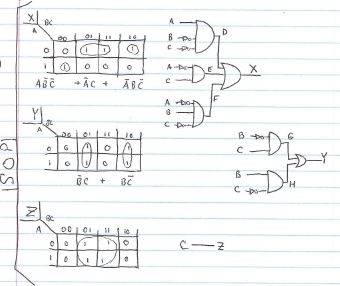 X BC
A 00 01 11 10
0 0 1 1 1
1 1 0 0 0
AB̄C̄ + ĀC + ĀBC̄
A
B
C
D
A
C
E
X
F
A
B
C
Y BC
A 00 01 11 10
0 0 1 0 1
1 0 1 0 1
B̄C + BC̄
B
C
G
Y
B
C
H
SOP
Z BC
A 00 01 11 10
0 0 1 1 0
1 0 1 1 0
C — Z